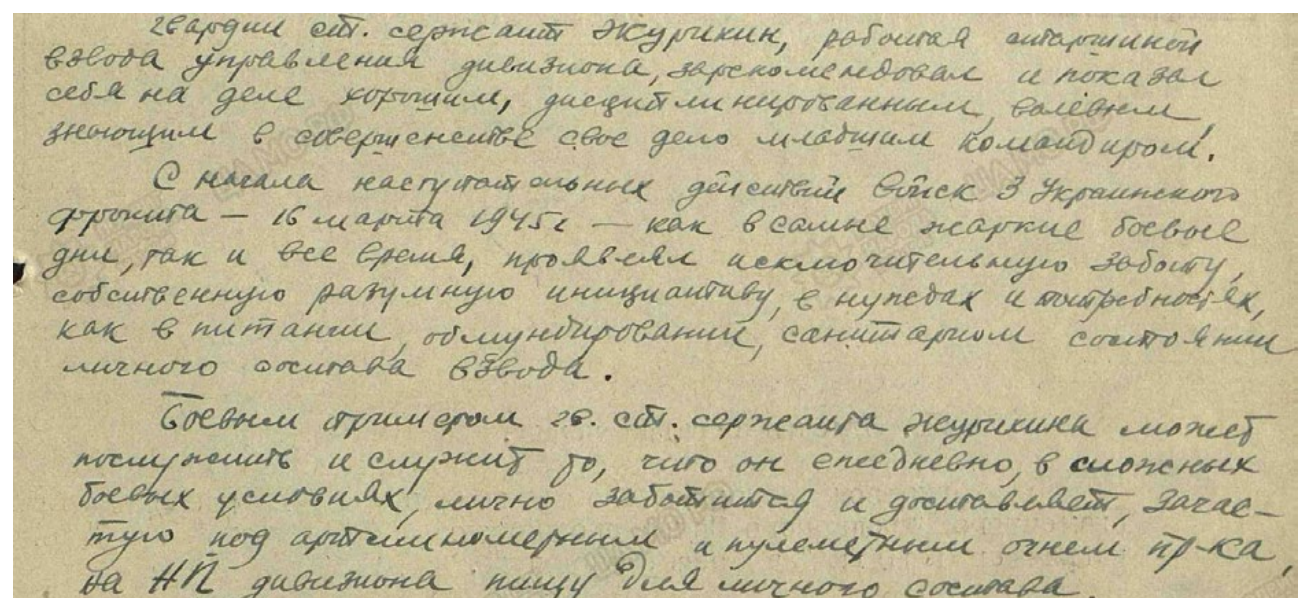 гвардии ст. сержант Журихин, работая старшиной
взвода управления дивизиона, зарекомендовал и показал
себя на деле хорошим, дисциплинированным, волевым,
знающим в совершенстве свое дело младшим командиром.
С начала наступательных действий войск 3 Украинского
фронта — 16 марта 1945г — как в самые жаркие боевые
дни, так и все время, проявлял исключительную заботу,
собственную разумную инициативу, в нуждах и потребностях,
как в питании, обмундировании, санитарном состоянии
личного состава взвода.
Боевым примером гв. ст. сержанта Журихина может
послужить и служит то, что он ежедневно, в сложных
боевых условиях, лично заботится и доставляет, зачас-
тую под артиллиномерным и пулеметным огнем пр-ка,
на НП дивизиона пищу для личного состава.